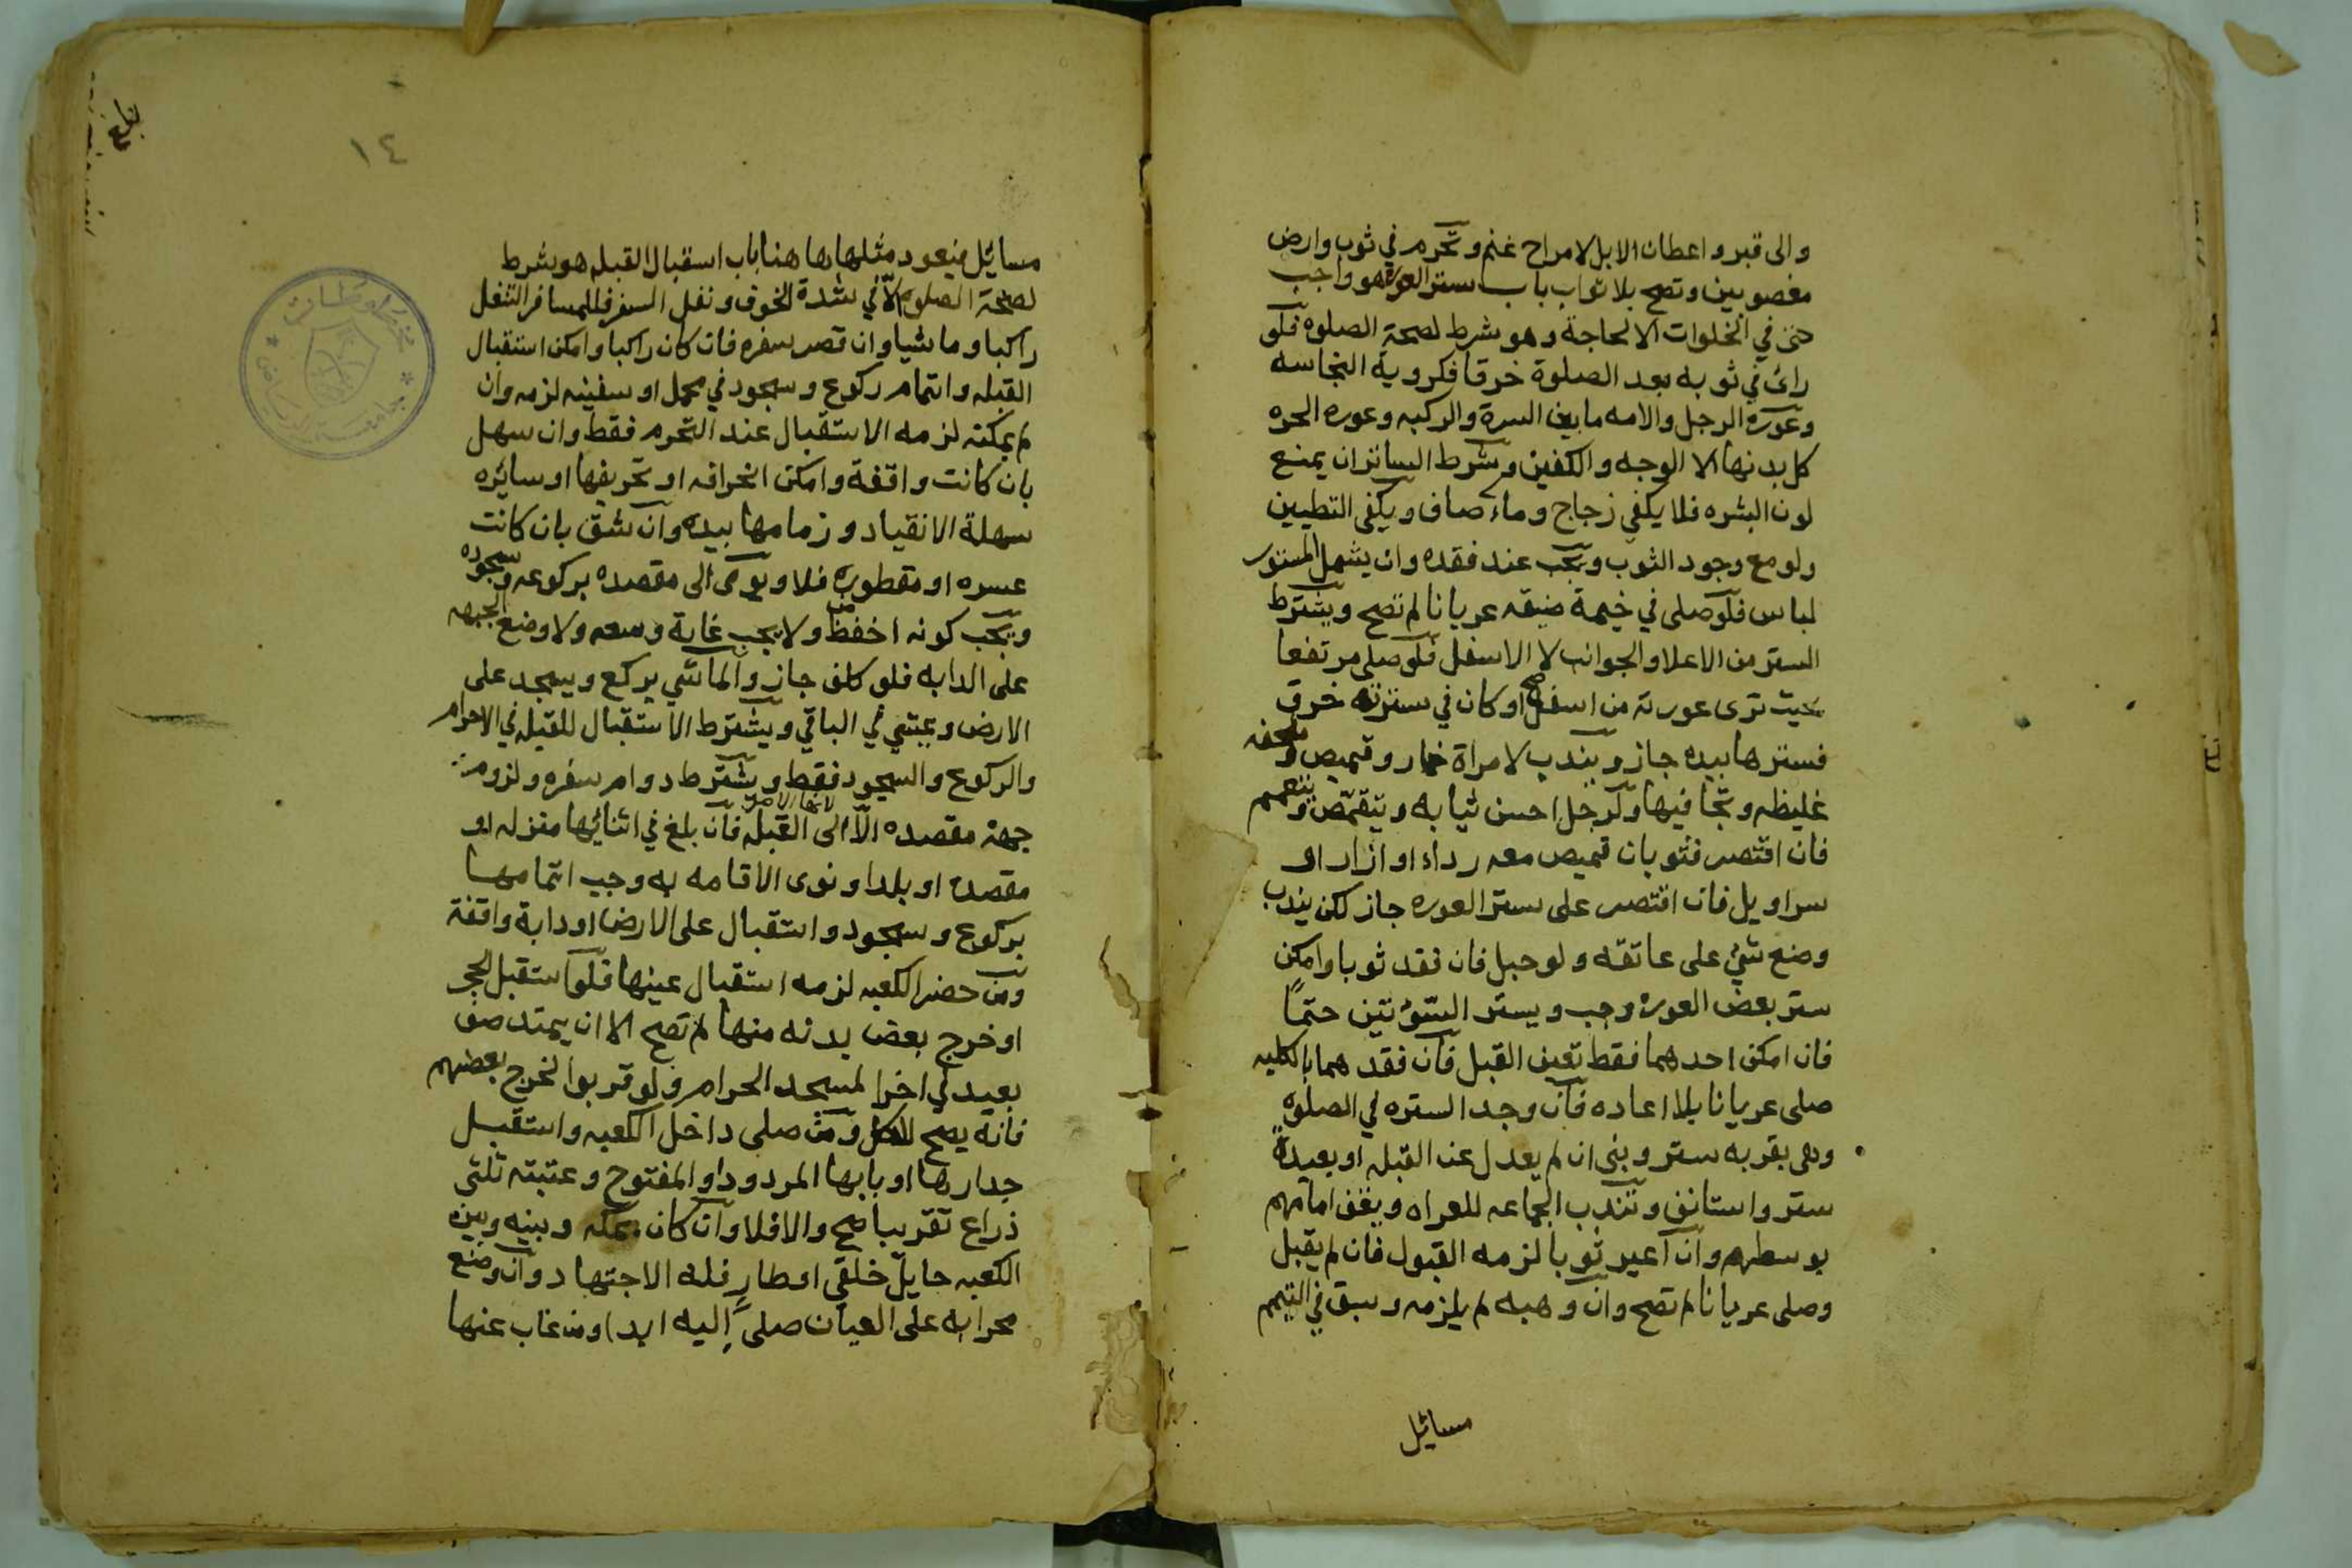 والى قبر واعطان الابل لا مراح غنم وتحرم في ثوب وارض
مغصوبين وتصح بلا ثواب باب ستر العورة هو واجب
حتى في الخلوات الا لحاجة وهو شرط لصحة الصلوة فلو
راى في ثوبه بعد الصلوة خرقا فكروية النجاسه
وعورة الرجل والامه ما بين السرة والركبه وعورة الحره
كل بدنها الا الوجه والكفين وشرط الساتر ان يمنع
لون البشره فلا يكفي زجاج وماء صاف ويكفي التطيين
ولو مع وجود الثوب ويجب عند فقده وان يشمل المستور
لباس فلو صلى في خيمة ضيقه عريانا لم تصح ويشترط
الستر من الاعلا والجوانب لا الاسفل فلو صلى مرتفعا
بحيث ترى عورته من اسفل صح او كان في سترته خرق
فسترها بيده جاز ويندب لامراة خمار وقميص وملحفه
غليظه وتجافيها ولرجل احسن ثيابه ويتقمص ويتعمم
فان اقتصر فثوبان قميص معه رداء او ازار او
سراويل فان اقتصر على ستر العوره جاز لكن يندب
وضع شئ على عاتقه ولو حبل فان فقد ثوبا وامكن
ستر بعض العوره وجب ويستر السوئتين حتمًا
فان امكن احدهما فقط تعين القبل فان فقدهما بالكليه
صلى عريانا بلا اعاده فان وجد الستره في الصلوة
وهي بقربه ستر وبنى ان لم يعدل عن القبله او بعيدة
ستر واستانف وتندب الجماعه للعراه ويقف امامهم
بوسطهم وان اعير ثوبا لزمه القبول فان لم يقبل
وصلى عريانا لم تصح وان وهبه لم يلزمه وسبق في التيمم
مسائل
١٤
بلغ
مسائل فيعود مثلها ها هنا باب استقبال القبله هو شرط
لصحة الصلوة الّا في شدة الخوف ونفل السفر فللمسافر التنفل
راكبا وماشيا وان قصر سفره فان كان راكبا وامكن استقبال
القبله واتمام ركوع وسجود في محمل او سفينه لزمه وان
لم يمكنه لزمه الاستقبال عند التحرم فقط وان سهل
بان كانت واقفة وامكن انحرافه او تحريفها او سائره
سهلة الانقياد وزمامها بيده وان شق بان كانت
عسره او مقطوره فلا ويومى الى مقصده بركوعه وسجوده
ويجب كونه اخفض ولا يجب غاية وسعه ولا وضع الجبهه
على الدابه فلو كلف جاز والماشي يركع ويسجد على
الارض ويمشي في الباقي ويشترط الاستقبال للقبله في الاحرام
والركوع والسجود فقط ويشترط دوام سفره ولزومه
جهة مقصده الّا الى القبله فان بلغ في اثنائها منزله او
مقصده او بلدا ونوى الاقامه به وجب اتمامها
بركوع وسجود واستقبال على الارض او دابة واقفة
ومن حضر الكعبه لزمه استقبال عينها فلو استقبل الحجر
او خرج بعض بدنه منها لم تصح الا ان يمتد صف
بعيد في اخر المسجد الحرام ولو قربوا لخرج بعضهم
فانه يصح للكل ومن صلى داخل الكعبه واستقبل
جدارها او بابها المردود او المفتوح وعتبته ثلثي
ذراع تقريبا صح والا فلا وان كان بمكه وبينه وبين
الكعبه حايل خلقي او طار فله الاجتهاد وان وضع
محرابه على العيان صلى اليه ابدا ومن غاب عنها